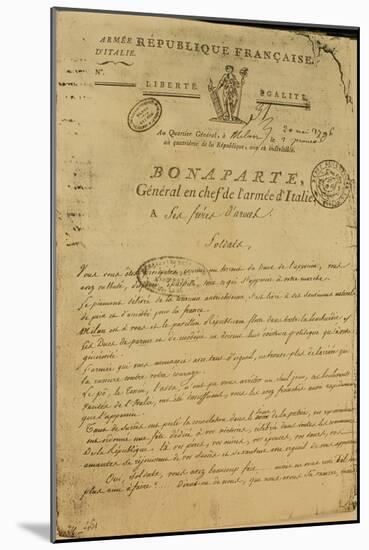 ARMÉE
D'ITALIE.
RÉPUBLIQUE FRANÇAISE.
N°.
LIBERTÉ. EGALITÉ.
Au Quartier Général, à Milan le 1 20 mai 1796
an quatrième de la République, une et indivisible.
BONAPARTE,
Général en chef de l'armée d'Italie
A Ses frères d'armes.
Soldats,
Vous vous êtes précipités, comme un torrent du haut de l'apennin, vous
avez culbuté, dispersé, tout ce qui s'opposait à votre marche.
Le piemont délivré de la tyrannie autrichienne, s'est livré à ses sentimens naturels
de paix et d'amitié pour la france.
Milan est à vous et le pavillon Républicain flotte dans toute la lombardie.
Les Ducs de parme et de modène ne doivent leur existence politique qu'à votre
générosité.
L'armée qui vous menaçait avec tant d'orgueil, ne trouve plus de barrière qui
la rassure contre votre courage.
Le pô, le Tesin, l'adda, n'ont pu vous arrêter un seul jour, ces boulevards
vantés de l'Italie, ont été insuffisans, vous les avez franchis aussi rapidement
que l'apennin.
Tant de succès ont porté la joie dans le sein de la patrie, vos représentans
ont ordonné une fête dédiée à vos victoires, célébrée dans toutes les communes
De la République. Là vos pères, vos mères, vos épouses, vos sœurs, vos
amantes se réjouissent de vos succès et se vantent avec orgueil de vous appartenir.
Oui, Soldats, vous avez beaucoup fait ... mais ne vous reste-t-il
plus rien à faire? ... Dira-t-on de nous, que nous avons su vaincre,